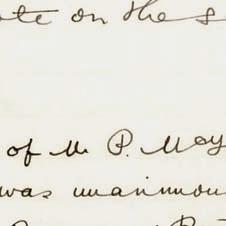 ote on the s
of Mr P. May
was unanimou